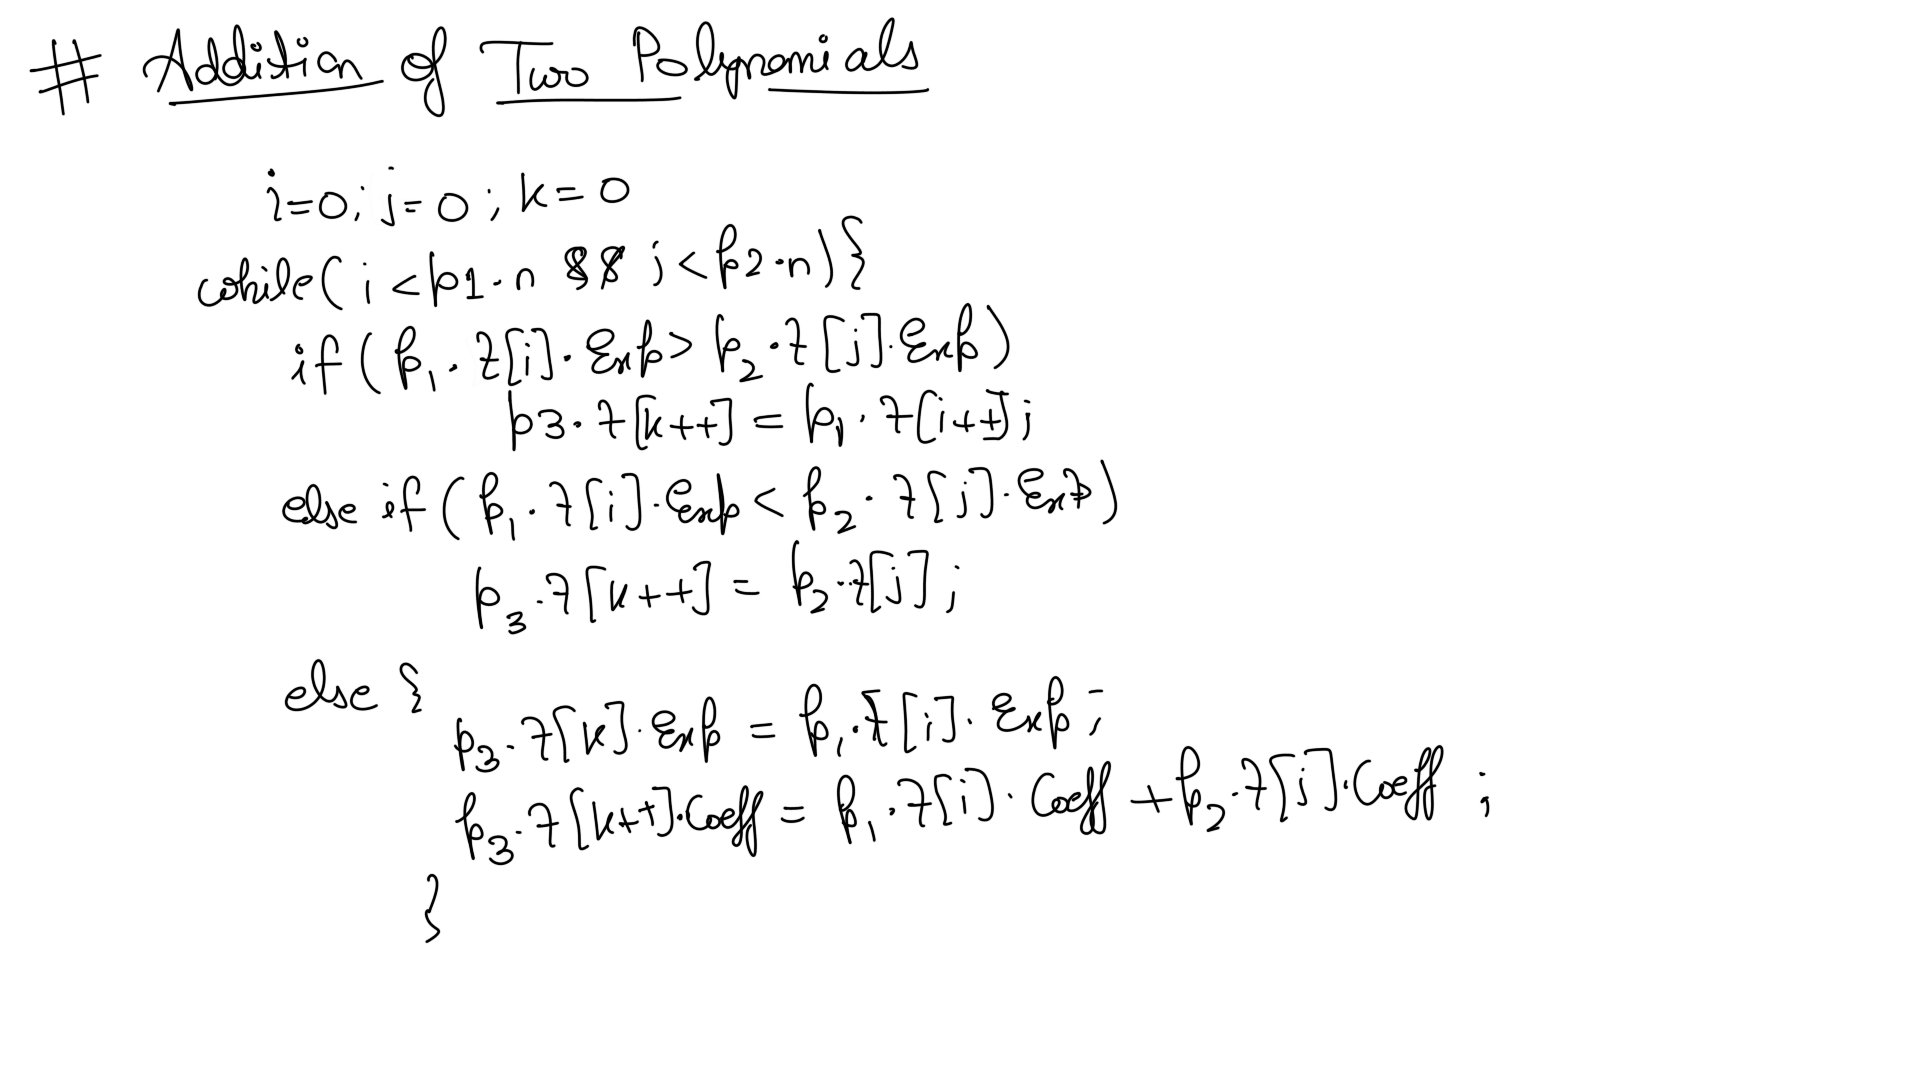 # Addition of Two Polynomials
i=0; j=0; k=0
while( i<p1.n && j<p2.n){
if( p1.7[i].Exp> p2.7[j].Exp)
p3.7[k++] = p1.7[i++];
else if( p1.7[i].Exp < p2.7[j].Exp)
p3.7[k++] = p2.7[j];
else {
p3.7[k].Exp = p1.7[i].Exp;
p3.7[k++].Coeff = p1.7[i].Coeff + p2.7[j].Coeff ;
}